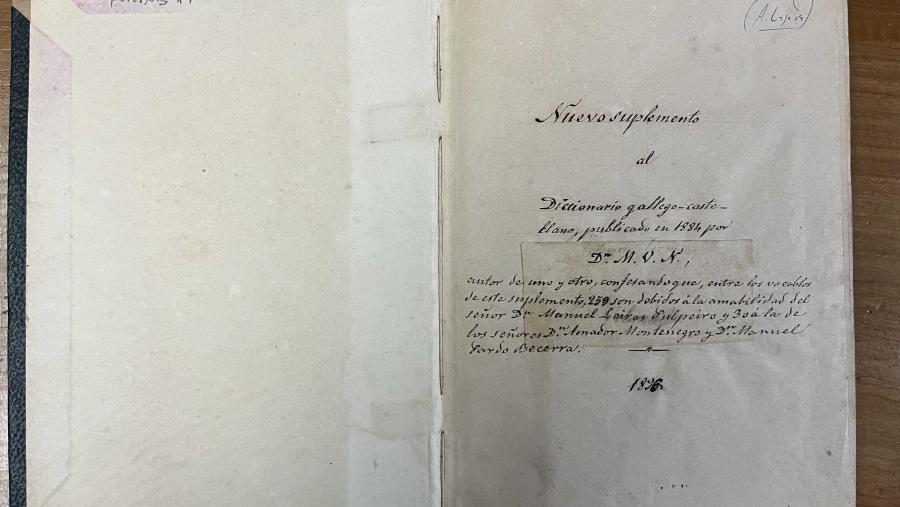 (A. López)
Nuevo suplemento
al
Diccionario gallego-caste-
llano, publicado en 1884 por
Dn. M. V. N.,
autor de uno y otro, confesando que, entre los vocablos
de este suplemento, 259 son debidos á la amabilidad del
señor Dn. Manuel Leiras Pulpeiro y 30 á la de
los señores Dn. Amador Montenegro y Dn. Manuel
Pardo Becerra.